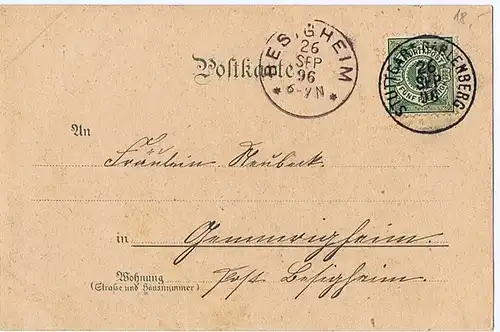 18.-
BESIGHEIM
26
SEP
96
6-7N
Postkarte
STUTTGART-KARLENBERG
26
SEP
96
FÜNF
An
Fräulein Neubeck.
in Gemmrigheim.
Wohnung Post Besigheim.
(Straße und Hausnummer)